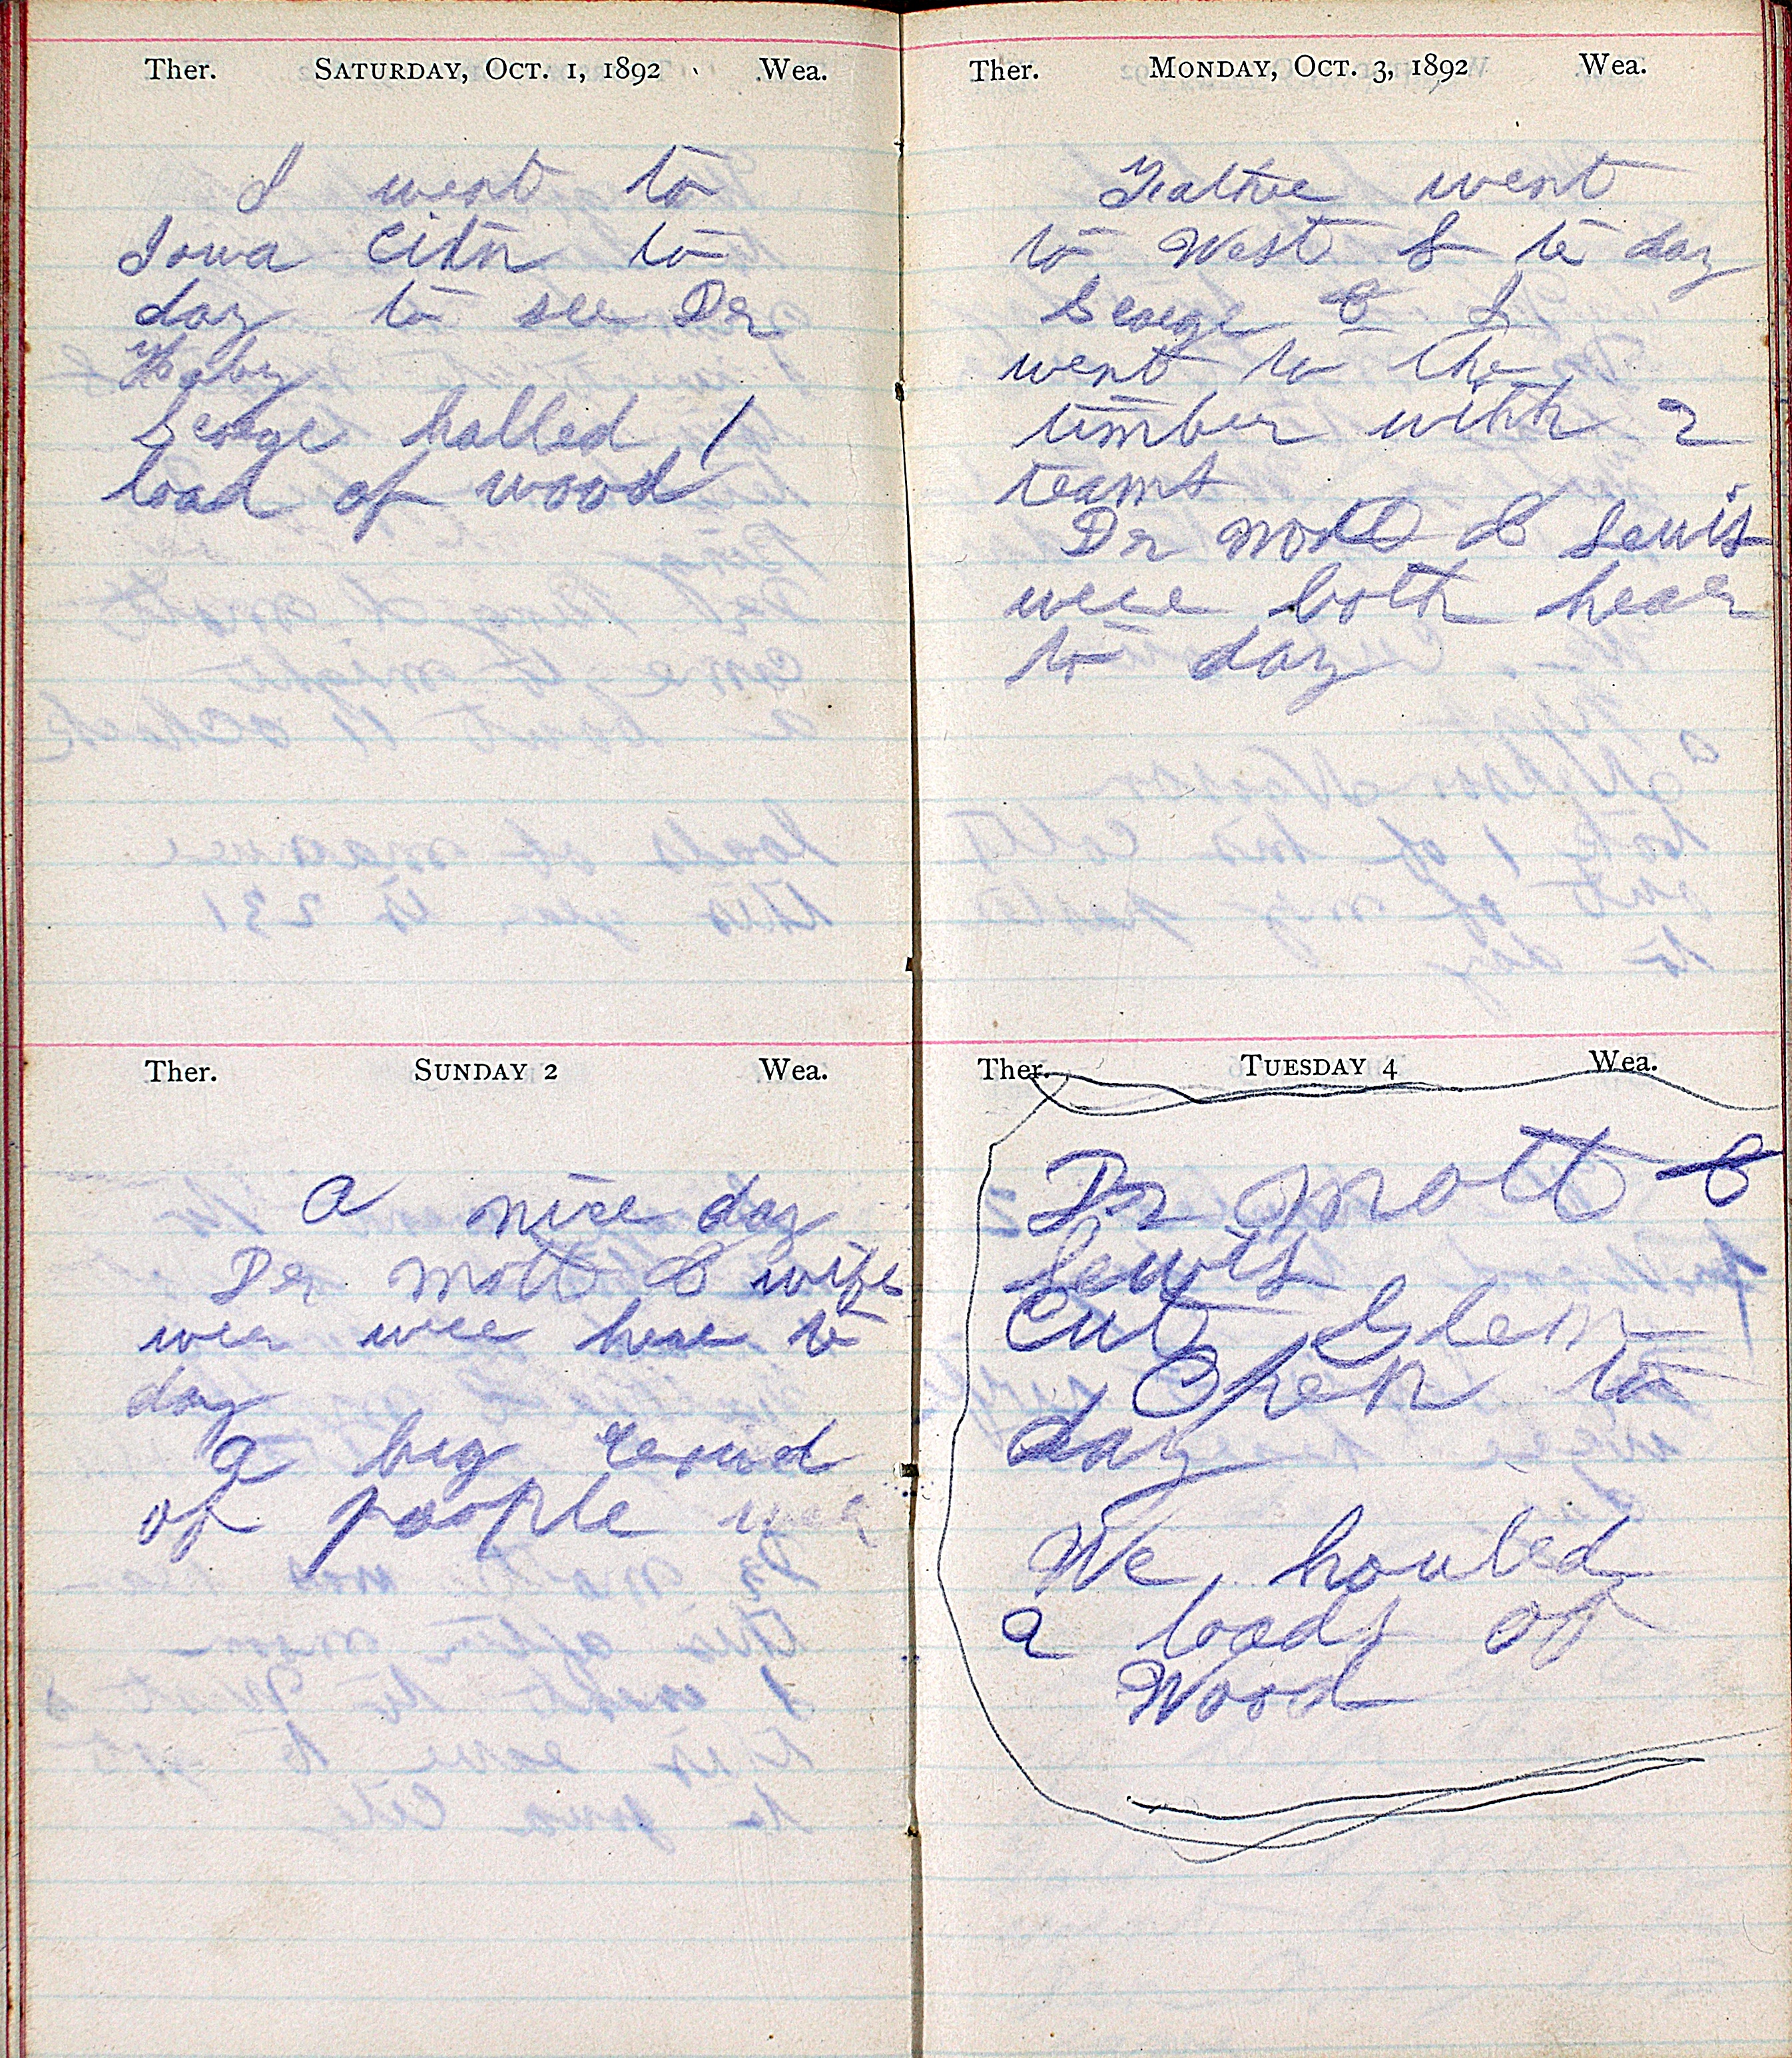 Ther. SATURDAY, OCT. 1, 1892 Wea.
I went to
Iowa City to
day to see Dr
George halled 1
load of wood
Ther. SUNDAY 2 Wea.
a nice day
Dr Mott & wife
wer were here to
day
a big crowd
of people wer
Ther. MONDAY, OCT. 3, 1892 Wea.
went
to West L to day
George & I
went to the
timber with 2
teams
Dr Mott & Lewis
were both hear
to day
Ther. TUESDAY 4 Wea.
Dr Mott &
Lewis
Cut Glen
Open to
day
We houled
2 loads of
Wood